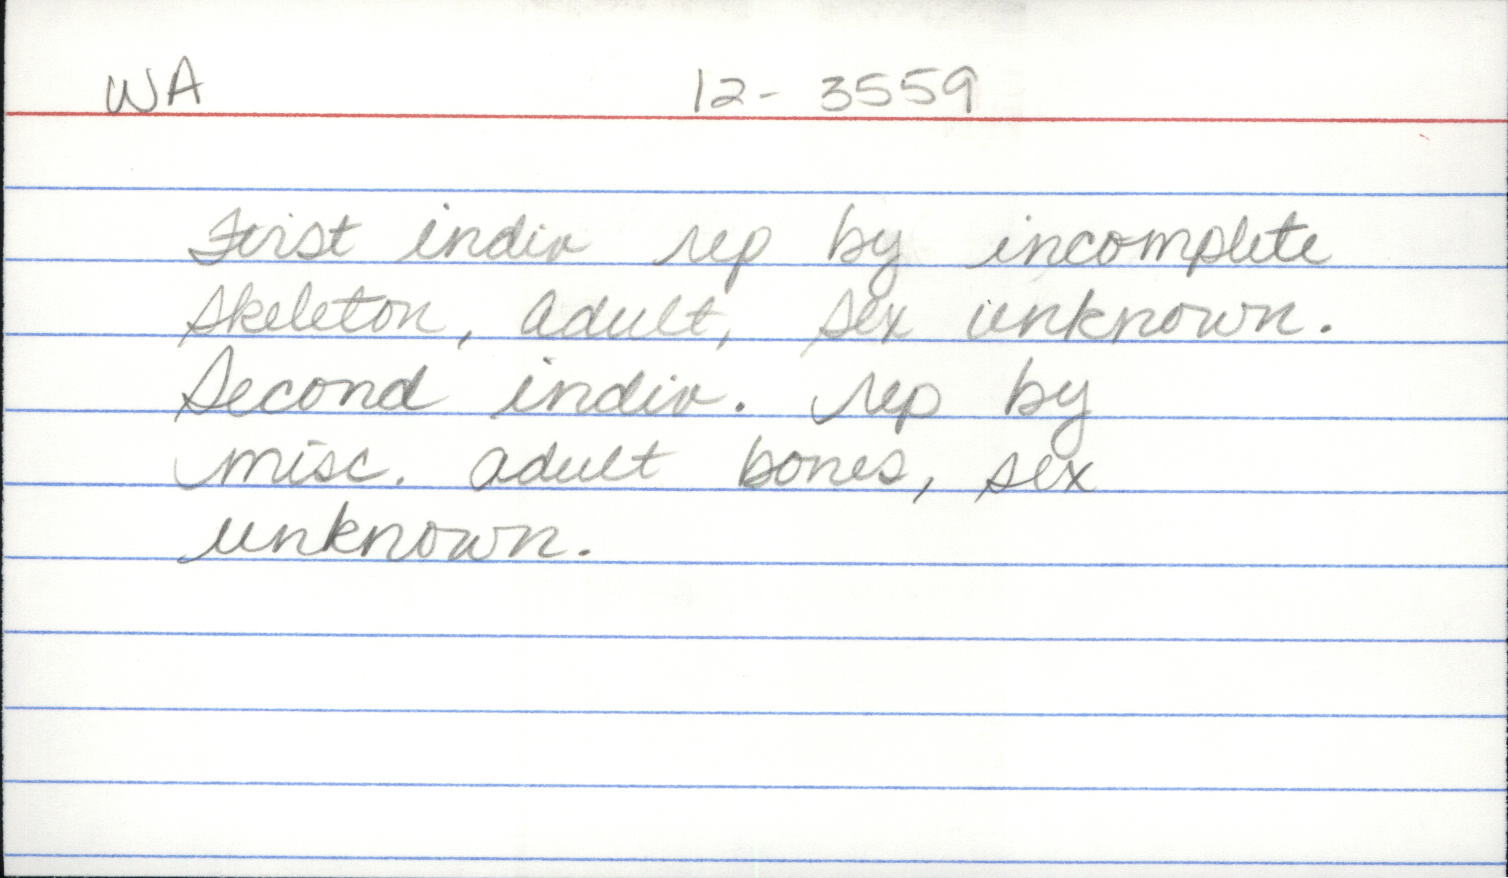 WA 12-3559
First indiv rep by incomplete
skeleton, adult, sex unknown.
Second indiv. rep by
misc. adult bones, sex
unknown.